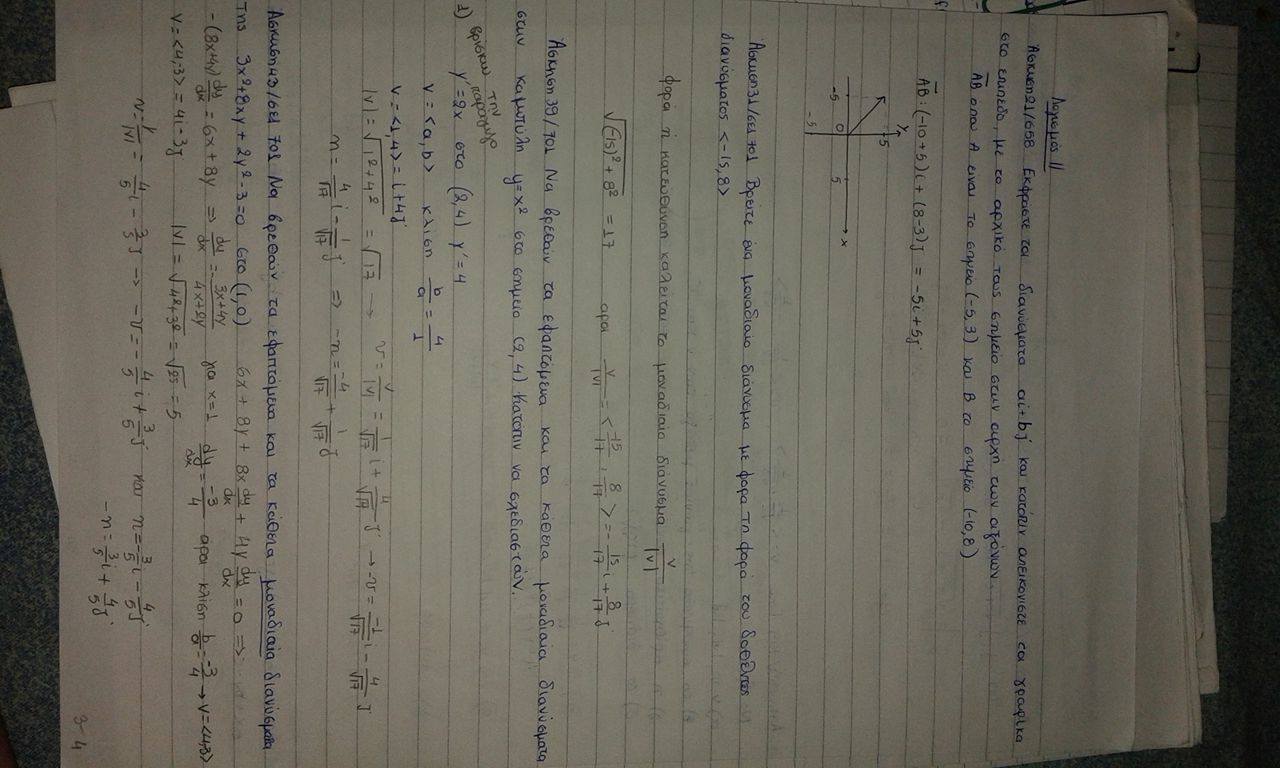 Λογισμός II
Άσκηση 21/658 Εκφράστε τα διανύσματα ai+bj και κατόπιν απεικονίστε τα γραφικά
στο επίπεδο, με το αρχικό τους σημείο στην αρχή των αξόνων
AB όπου A είναι το σημείο (-5,3) και B το σημείο (-10,8)
AB: (-10+5)i + (8-3)j = -5i+5j
y
5
-5 0 5 x
-5
Άσκηση 31/σελ 701 Βρείτε ένα μοναδιαίο διάνυσμα με φορά τη φορά του δοθέντος
διανύσματος <-15,8>
φορά ή κατεύθυνση καλείται το μοναδιαίο διάνυσμα v/|v|
√(-15)²+8² = 17 άρα v/|v| = <-15/17, 8/17> = -15/17 i + 8/17 j
Άσκηση 39/701 Να βρεθούν τα εφαπτόμενα και τα κάθετα μοναδιαία διανύσματα
στην καμπύλη y=x² στο σημείο (2,4) Κατόπιν να σχεδιαστούν.
1) βρίσκω την παράγωγο y'=2x στο (2,4) y'=4
v=<a,b> κλίση b/a = 4/1
v=<1,4> = i+4j
|v| = √1²+4² = √17 → v = v/|v| = 1/√17 i + 4/√17 j → -v = -1/√17 i - 4/√17 j
n = 4/√17 i - 1/√17 j => -n = -4/√17 + 1/√17 j
Άσκηση 43/σελ 701 Να βρεθούν τα εφαπτόμενα και τα κάθετα μοναδιαία διανύσματα
της 3x²+8xy+2y²-3=0 στο (1,0) 6x+8y+8x dy/dx + 4y dy/dx = 0 =>
-(8x+4y) dy/dx = 6x+8y => dy/dx = - 3x+4y/4x+2y για x=1 dy/dx = -3/4 άρα κλίση b/a = -3/4 → v=<4,-3>
v=<4,-3> = 4i-3j |v| = √4²+3² = √25 = 5
v = v/|v| = 4/5 i - 3/5 j → -v = -4/5 i + 3/5 j και n = -3/5 i - 4/5 j
-n = 3/5 i + 4/5 j
3-4